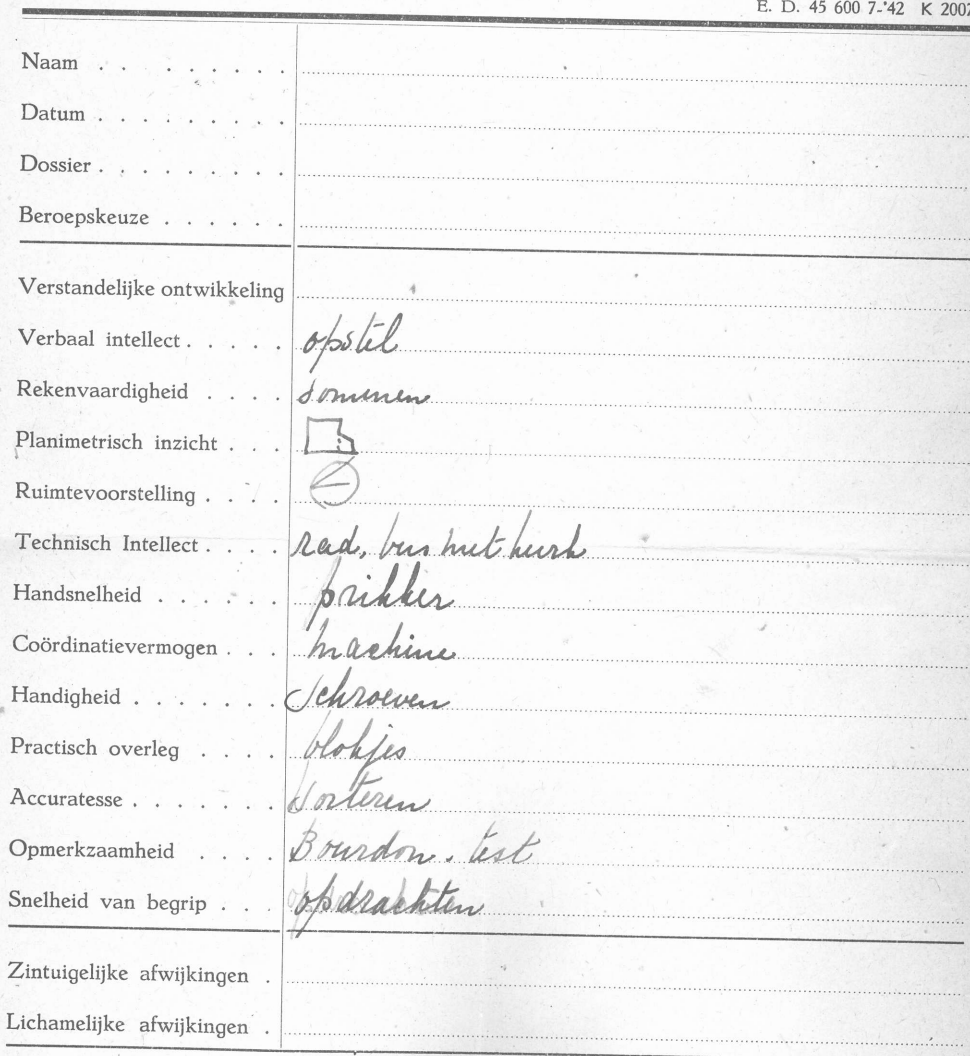 E. D. 45 600 7-'42 K 2002
Naam . . . . . . . . .
Datum . . . . . . . . .
Dossier . . . . . . . . .
Beroepskeuze . . . . . .
Verstandelijke ontwikkeling
Verbaal intellect . . . . . opstel
Rekenvaardigheid . . . . sommen
Planimetrisch inzicht . . .
Ruimtevoorstelling . . . .
Technisch Intellect . . . . rad, bus met kurk
Handsnelheid . . . . . . prikker
Coördinatievermogen . . . machine
Handigheid . . . . . . . Schroeven
Practisch overleg . . . . blokjes
Accuratesse . . . . . . . Sorteren
Opmerkzaamheid . . . . Bourdon. test
Snelheid van begrip . . . opdrachten
Zintuigelijke afwijkingen .
Lichamelijke afwijkingen .